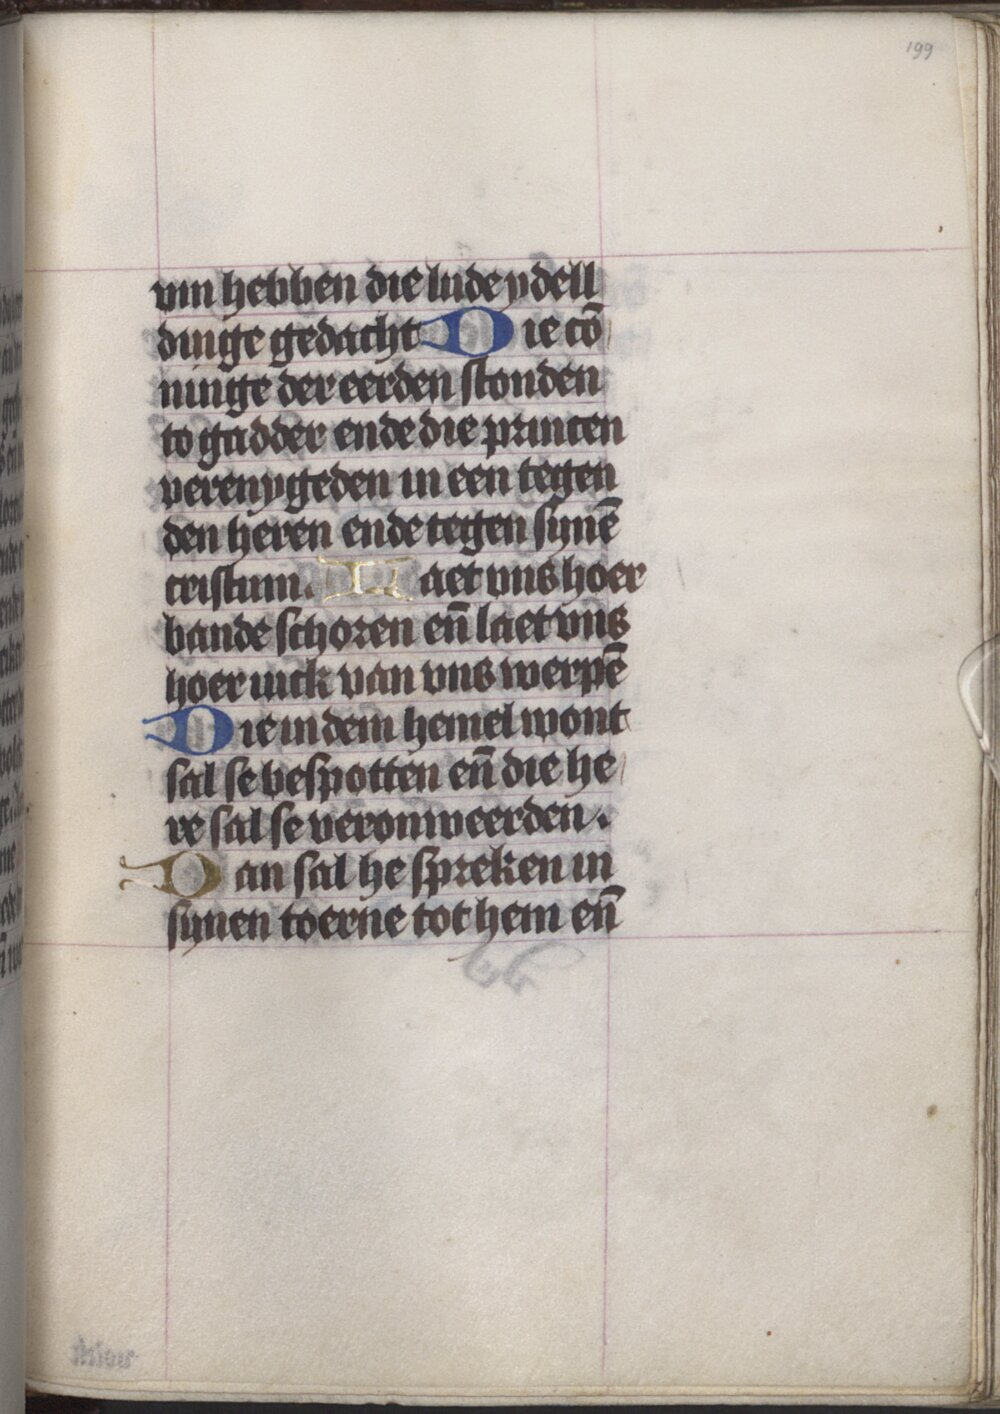 199
vm hebben die lude ydell
dinge gedacht Die cō
ninge der eerden stonden
to gadder ende die princen
verenygeden in een tegen
den heren ende tegen synē
cristum. Laet vns hoer
bande schoren en̄ laet vns
hoer iuck van vns werpē
Die in dem hemel wont
sal se bespotten en̄ die he
re sal se veronweerden.
Dan sal he spreken in
synen toerne tot hem en̄